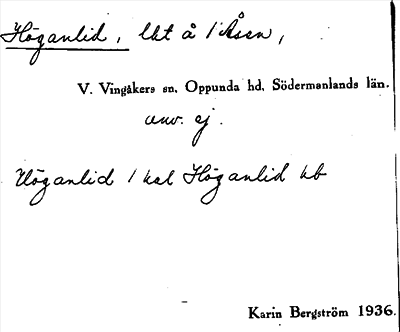 Höganlid, lht å 1 Åsen,
V. Vingåkers sn, Oppunda hd, Södermanlands län.
anv. ej.
Höganlid 1 hal Höganlid kb
Karin Bergström 1936.